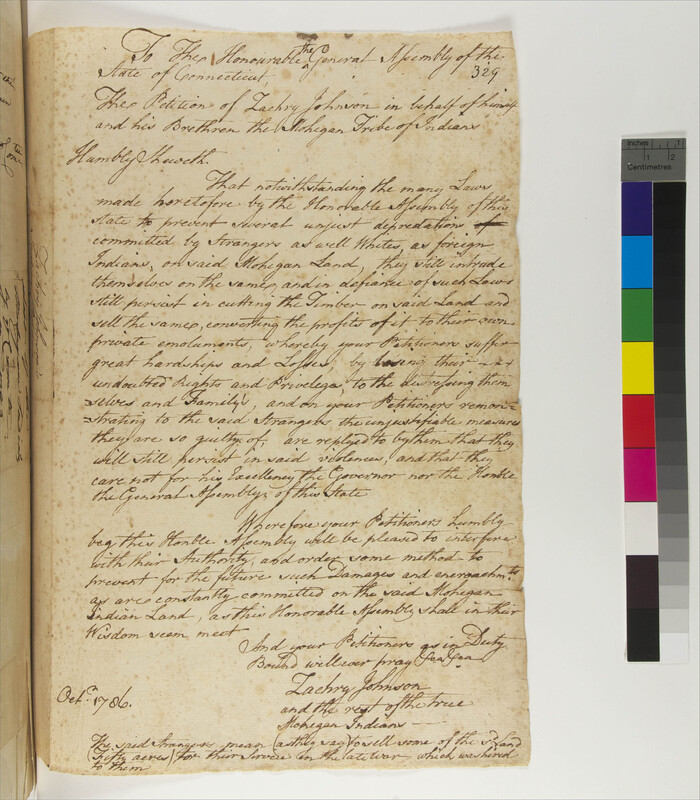 To The Honourable the General Assembly of the
State of Connecticut
329
The Petition of Zachry Johnson in behalf of himself
and his Brethren the Mohegan Tribe of Indians
Humbly Sheweth.
That notwithstanding the many Laws
made heretofore by the Honorable Assembly of this
State to prevent several unjust depredations of
committed by Strangers as well Whites, as foreign
Indians, on said Mohegan Land, they still intrude
themselves on the same, and in defiance of such Laws
still persist in cutting the Timber on said Land and
sell the same, converting the profits of it to their own
private emoluments, whereby your Petitioners suffer
great hardships and Losses, by losing their
undoubted Rights and Privelege, to the distressing them
=selves and Family's, and on your Petitioners remon=
=strating to the said Strangers the unjustifiable measures
they are so guilty of, are replyed to by them that they
will still persist in said violences, and that they
care not for his Excellency the Governor nor the Honble
the General Assembly, of this State
Wherefore your Petitioners humbly
beg this Honble Assembly will be pleased to interfere
with their Authority, and order some method to
prevent for the future such Damages and encroachmts
as are constantly committed on the said Mohegan
Indian Land, as this Honorable Assembly shall in their
Wisdom seem meet
And your Petitioners as in Duty
Bound will ever pray &ca &ca
Zachry Johnson
and the rest of the true
Mohegan Indians
Octr. 1786.
The said Strangers mean (as they say) to sell some of the sd. Land
(Fifty acres) for their Service in the late war which was hired
to them